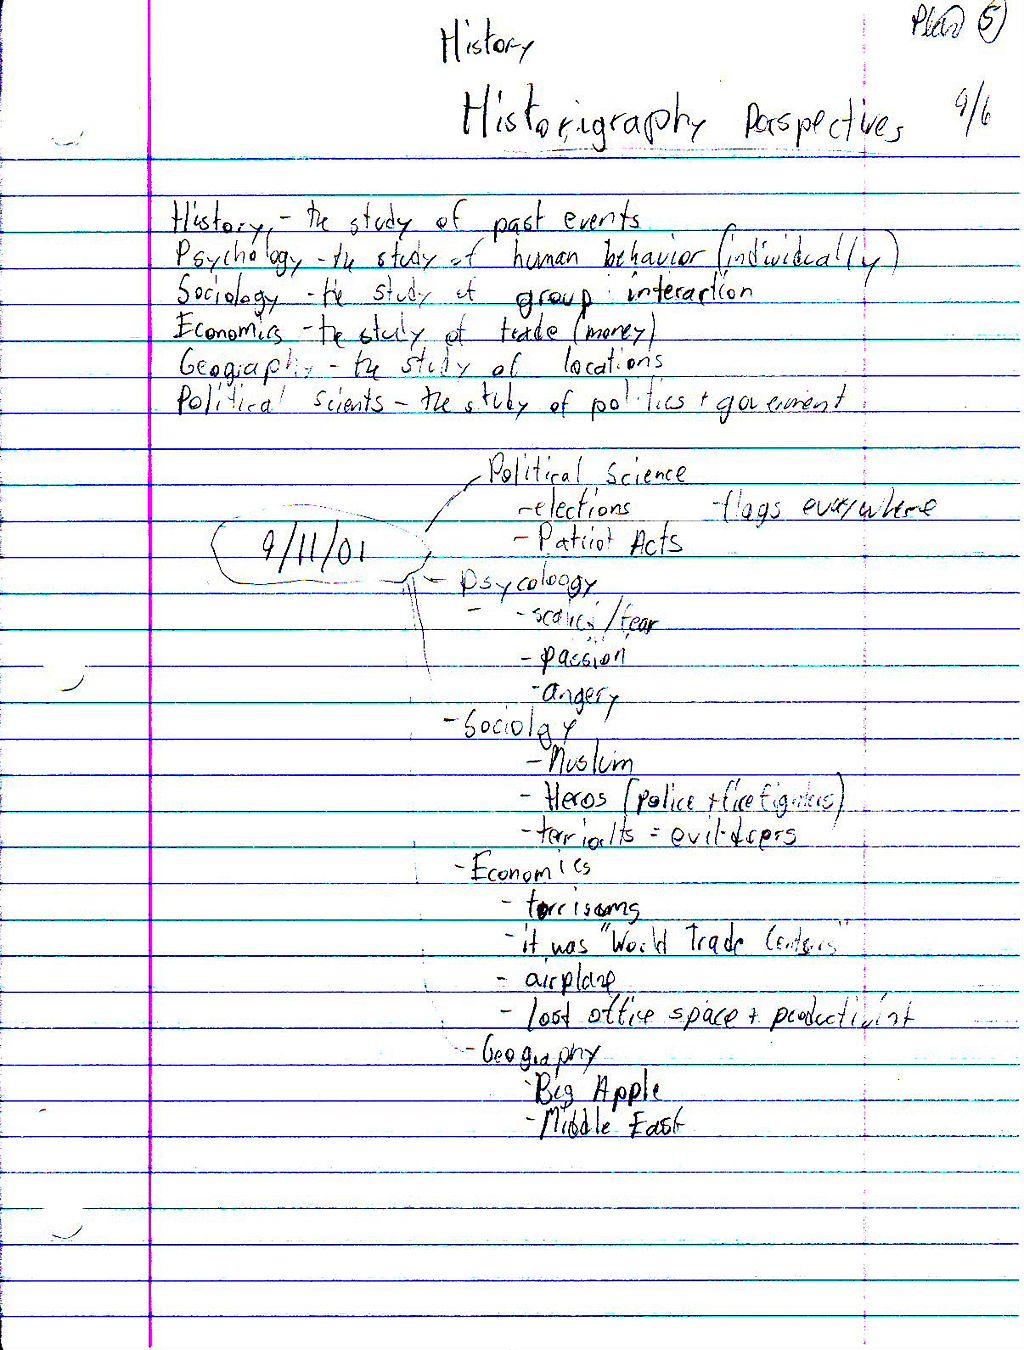 History
5
Historigraphy Perspectives 9/6
History - the study of past events
Psychology - the study of human behavior (individually)
Sociology - the study of group interaction
Economics - the study of trade (money)
Geography - the study of locations
Political scients - the study of politics + government
Political Science
- elections - flags everywhere
9/11/01
- Patriot Acts
- Psycology
- /fear
- passion
- angery
- Sociolgy
- Muslum
- Heros (police + firefighters)
- = evil-doers
- Economics
-
- it was "World Trade Centers"
- airplane
- lost office space +
- Geography
- Big Apple
- Middle East